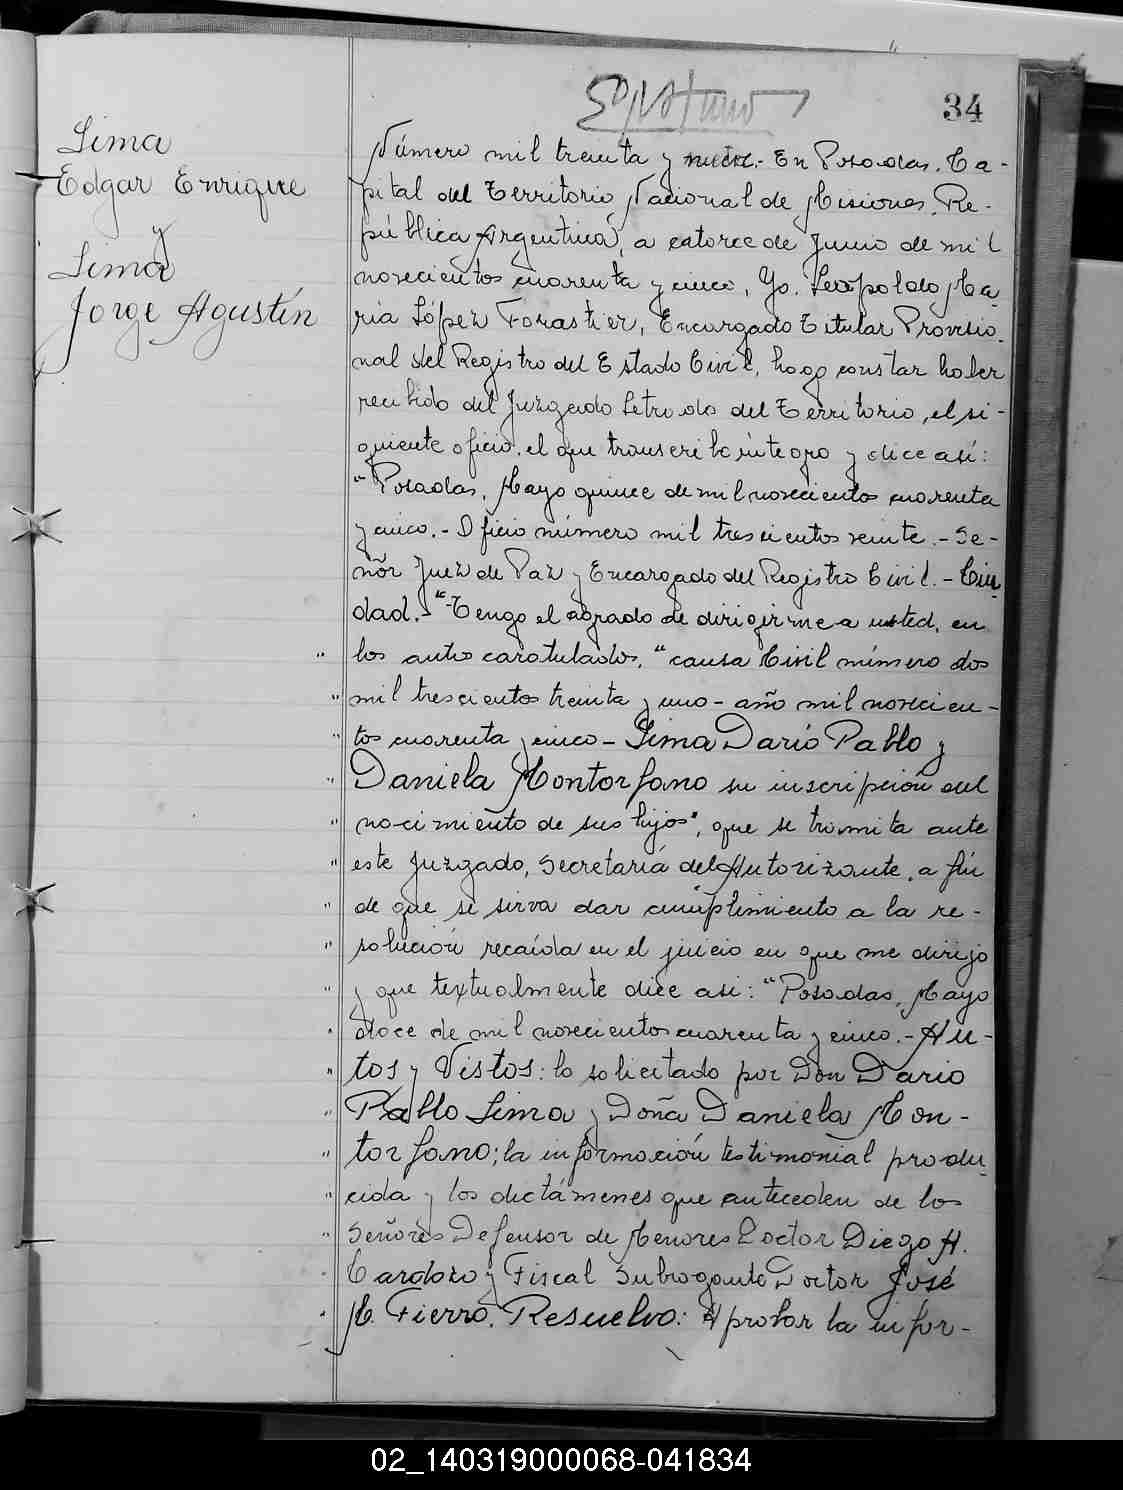 34
Lima
Edgar Enrique
y
Lima
Jorge Agustín
Número mil treinta y .- En Posadas, Ca-
pital del Territorio Nacional de Misiones, Re-
pública Argentina, a catorce de Junio de mil
novecientos cuarenta y cinco, Yo, Leopoldo Ma-
ria López Forastier, Encargado Titular Provisio-
nal del Registro del Estado Civil, hago constar haber
recibido del Juzgado Letrado del Territorio, el si-
guiente oficio, el que transcribo íntegro y dice así:
"Posadas, Mayo quince de mil novecientos cuarenta
y cinco.- Oficio número mil trescientos veinte.- Se-
ñor Juez de Paz y Encargado del Registro Civil.- Ciu-
dad.- "Tengo el agrado de dirigirme a usted, en
" los autos caratulados, "causa Civil número dos
" mil trescientos treinta y uno - año mil novecien-
" tos cuarenta y cinco - Lima Darío Pablo y
" Daniela Montorfano su inscripción del
" nacimiento de sus hijos", que se tramita ante
" este Juzgado, Secretaría del Autorizante, a fin
" de que se sirva dar cumplimiento a la re-
" solución recaída en el juicio en que me dirijo
" y que textualmente dice asi: "Posadas, Mayo
" doce de mil novecientos cuarenta y cinco.- Au-
" tos y Vistos: lo solicitado por Don Dario
" Pablo Lima y Doña Daniela Mon-
" torfano; la información testimonial produ-
" cida y los dictámenes que anteceden de los
" Señores Defensor de Menores Doctor Diego A.
" Cardozo y Fiscal Subrogante Doctor José
" M. Fierro, Resuelvo: Aprobar la infor-
02_140319000068-041834